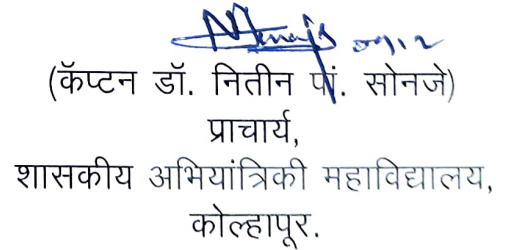 (कॅप्टन डॉ. नितीन पां. सोनजे)
प्राचार्य,
शासकीय अभियांत्रिकी महाविद्यालय,
कोल्हापूर.